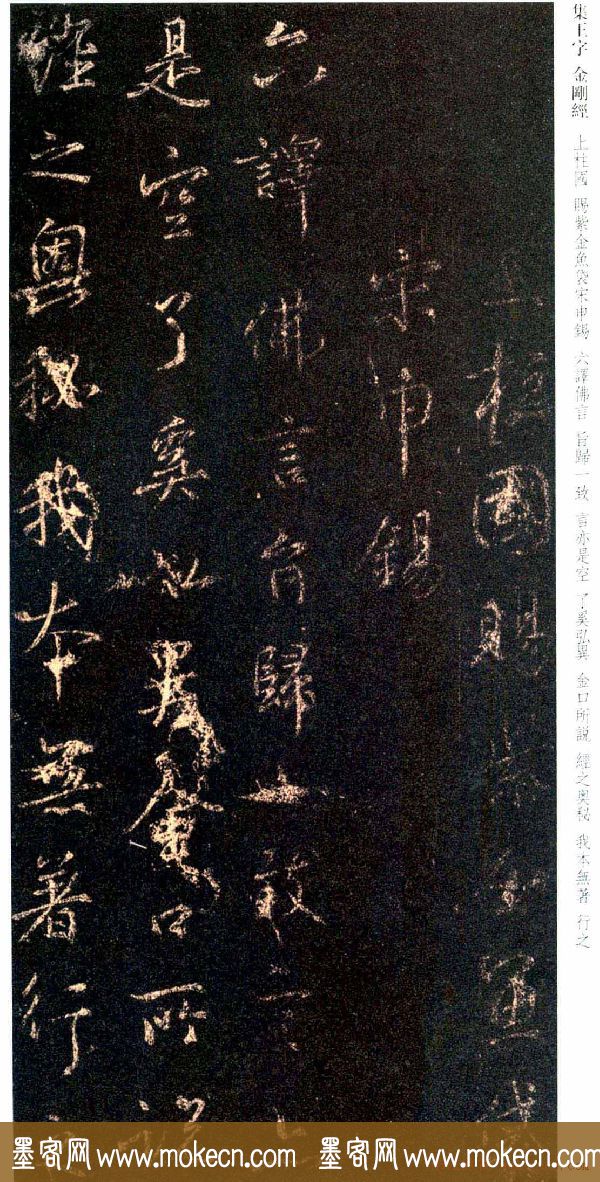 集王字 金剛經 上柱國 賜紫金魚袋宋申錫 六譯佛言 旨歸一致 言亦是空 了奚弘巽 金口所説 經之奥秘 我本無著 行之
上柱國賜紫金魚袋
宋申錫
六譯佛言旨歸一致言亦
是空了奚弘巽金口所説
經之奥秘我本無著行之
墨客网 www.mokecn.com 墨客网 www.mokecn.com 墨客网